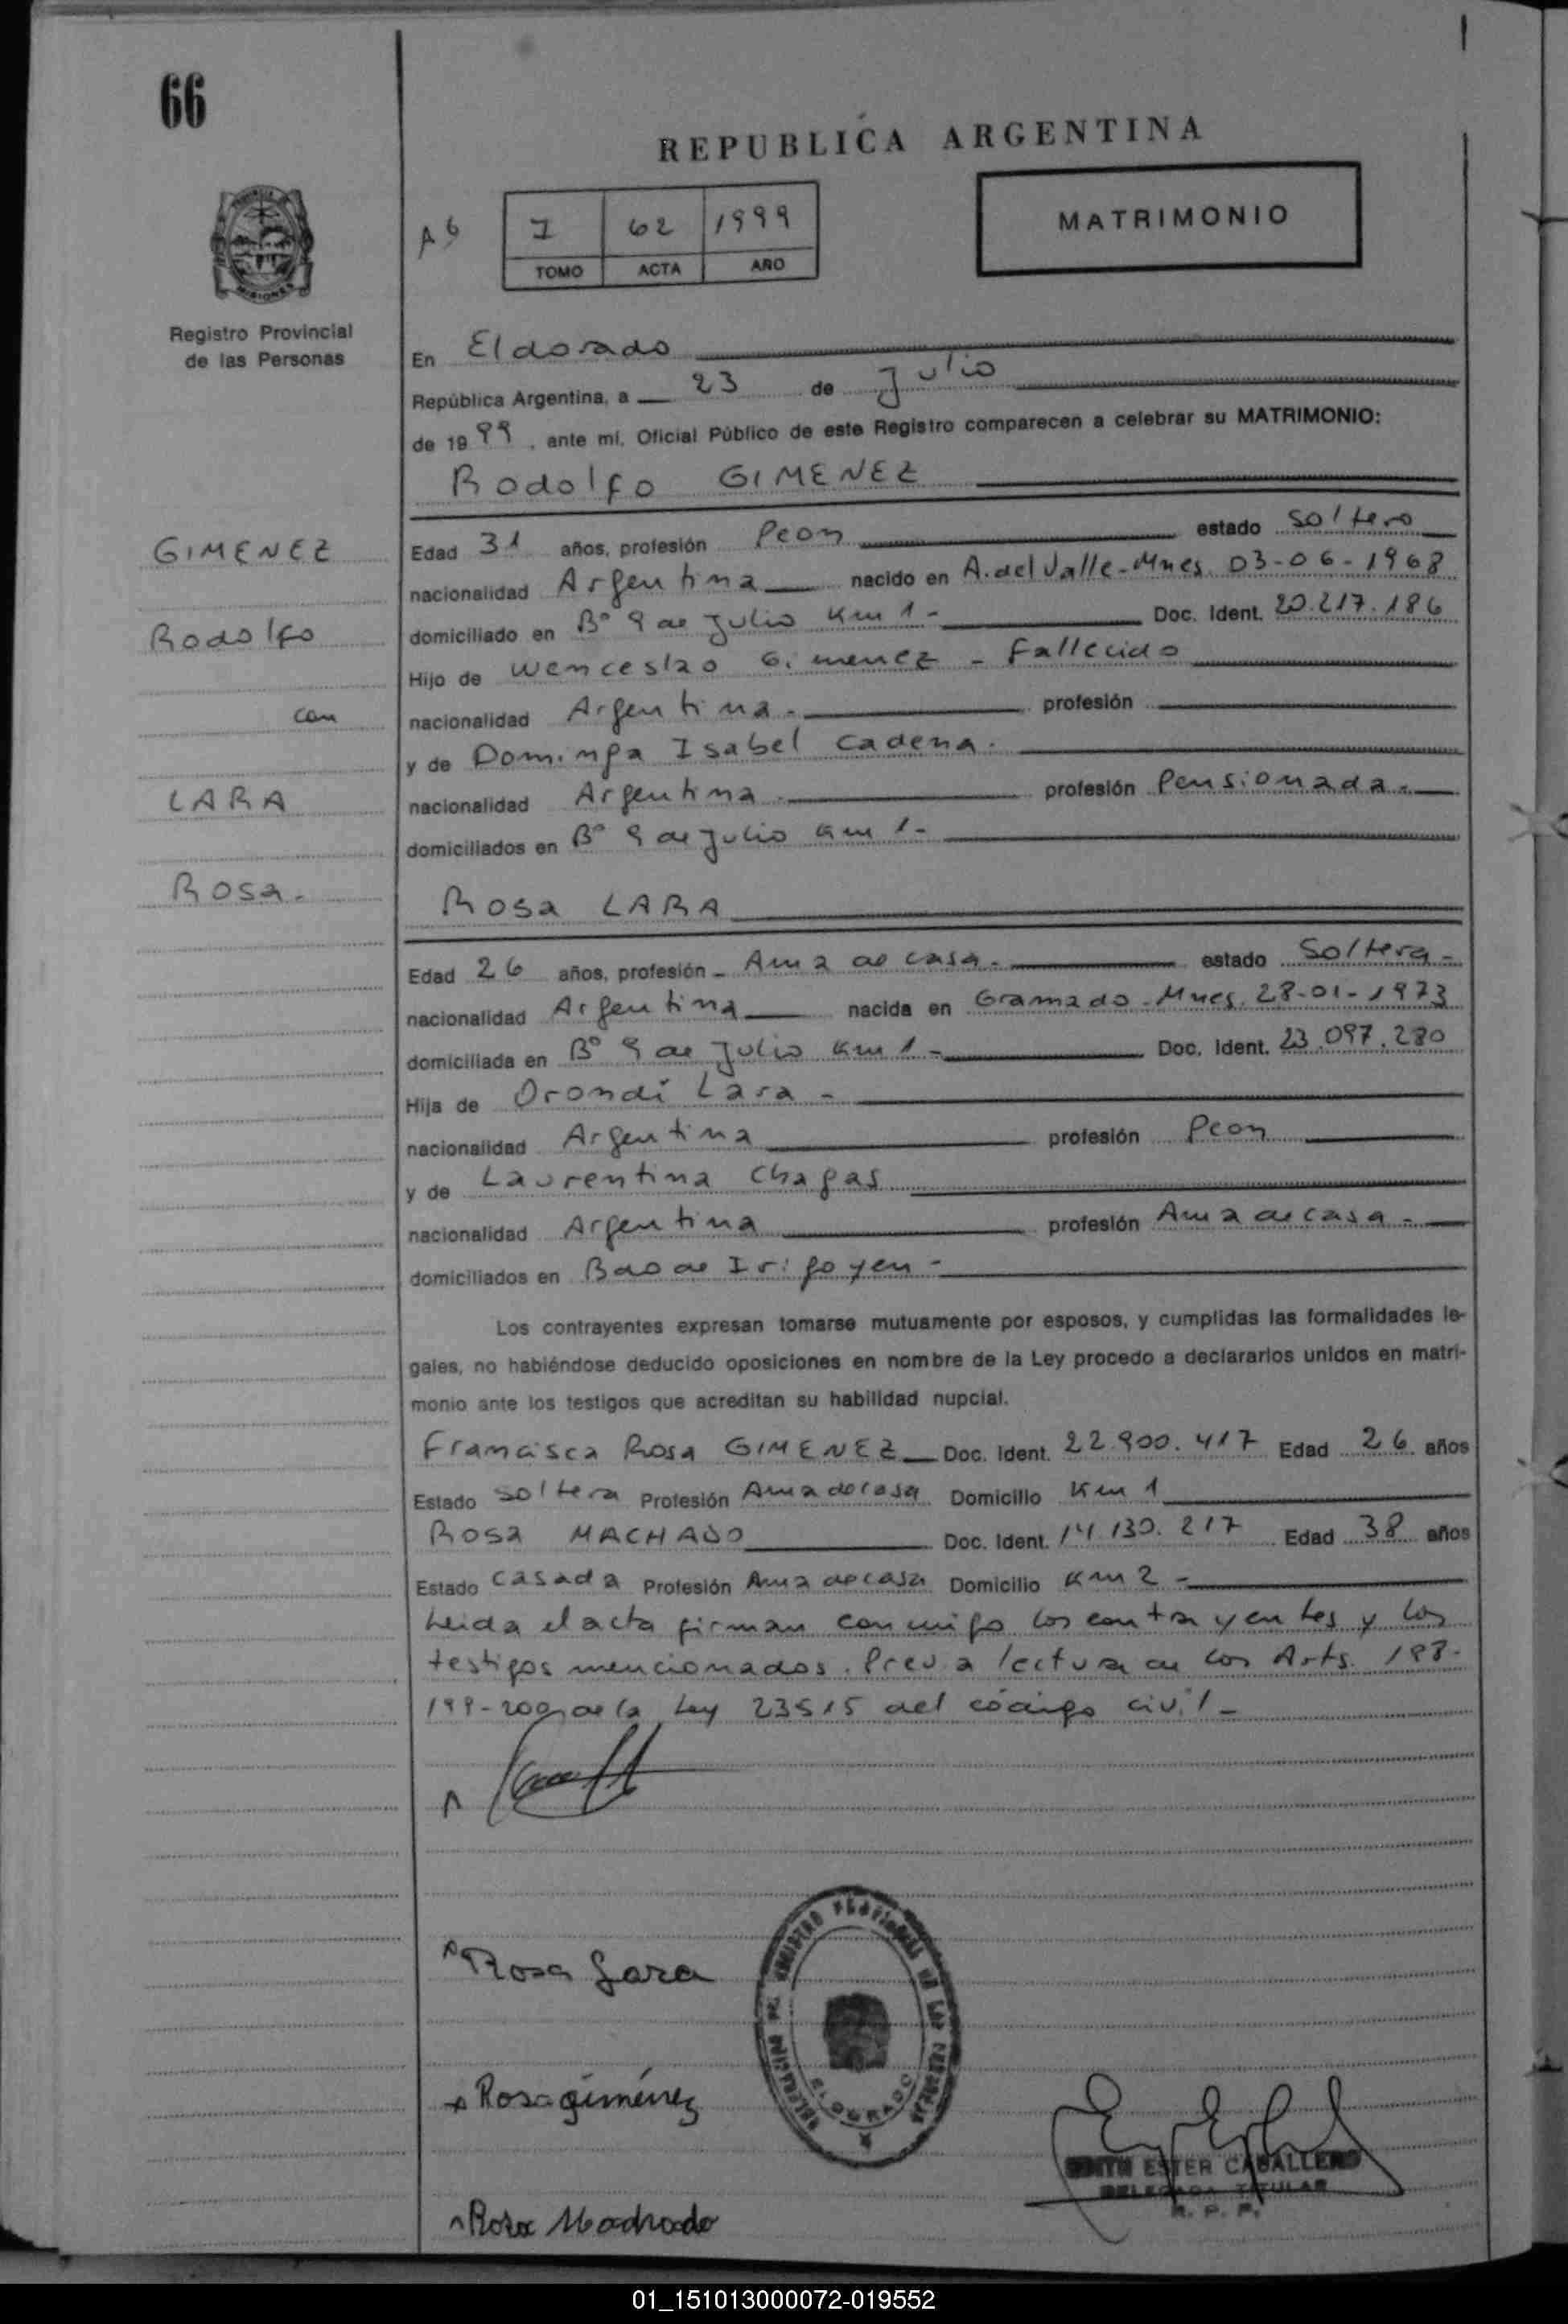 66
REPUBLICA ARGENTINA
I 62 1999
TOMO ACTA AÑO
MATRIMONIO
Registro Provincial
de las Personas
En Eldorado
República Argentina, a 23 de Julio
de 1999, ante mí, Oficial Público de este Registro comparecen a celebrar su MATRIMONIO:
Rodolfo GIMENEZ
GIMENEZ
Rodolfo
con
LARA
Rosa.
Edad 31 años, profesión Peon estado soltero
nacionalidad Argentina nacido en A. del Valle-Mnes. 03-06-1968
domiciliado en Bº 9 de Julio Km 1- Doc. Ident. 20.217.186
Hijo de Wenceslao Gimenez - Fallecido
nacionalidad Argentina. profesión
y de Dominga Isabel Cadena.
nacionalidad Argentina. profesión Pensionada.
domiciliados en Bº 9 de Julio Km 1-
Rosa LARA
Edad 26 años, profesión - Ama de casa. estado Soltera-
nacionalidad Argentina nacida en Gramado-Mnes. 28-01-1973
domiciliada en Bº 9 de Julio Km 1- Doc. Ident. 23.097.280
Hija de Orondí Lara -
nacionalidad Argentina profesión Peon
y de Laurentina Chagas
nacionalidad Argentina profesión Ama de casa.
domiciliados en Bdo de Irigoyen -
Los contrayentes expresan tomarse mutuamente por esposos, y cumplidas las formalidades le-
gales, no habiéndose deducido oposiciones en nombre de la Ley procedo a declararlos unidos en matri-
monio ante los testigos que acreditan su habilidad nupcial.
Francisca Rosa GIMENEZ Doc. Ident. 22.900.417 Edad 26 años
Estado soltera Profesión Ama de casa Domicilio Km 1
Rosa MACHADO Doc. Ident. 14.130.217 Edad 38 años
Estado casada Profesión Ama de casa Domicilio Km 2 -
Leida el acta firman conmigo los contrayentes y los
testigos mencionados. Previa lectura de los Arts. 198-
199-200 de la Ley 23515 del código civil-
Rosa Lara
Rosa giménez
Rosa Machado
ELDORADO
EDITH ESTER CABALLERO
DELEGADA TITULAR
R. P. P.
01_151013000072-019552